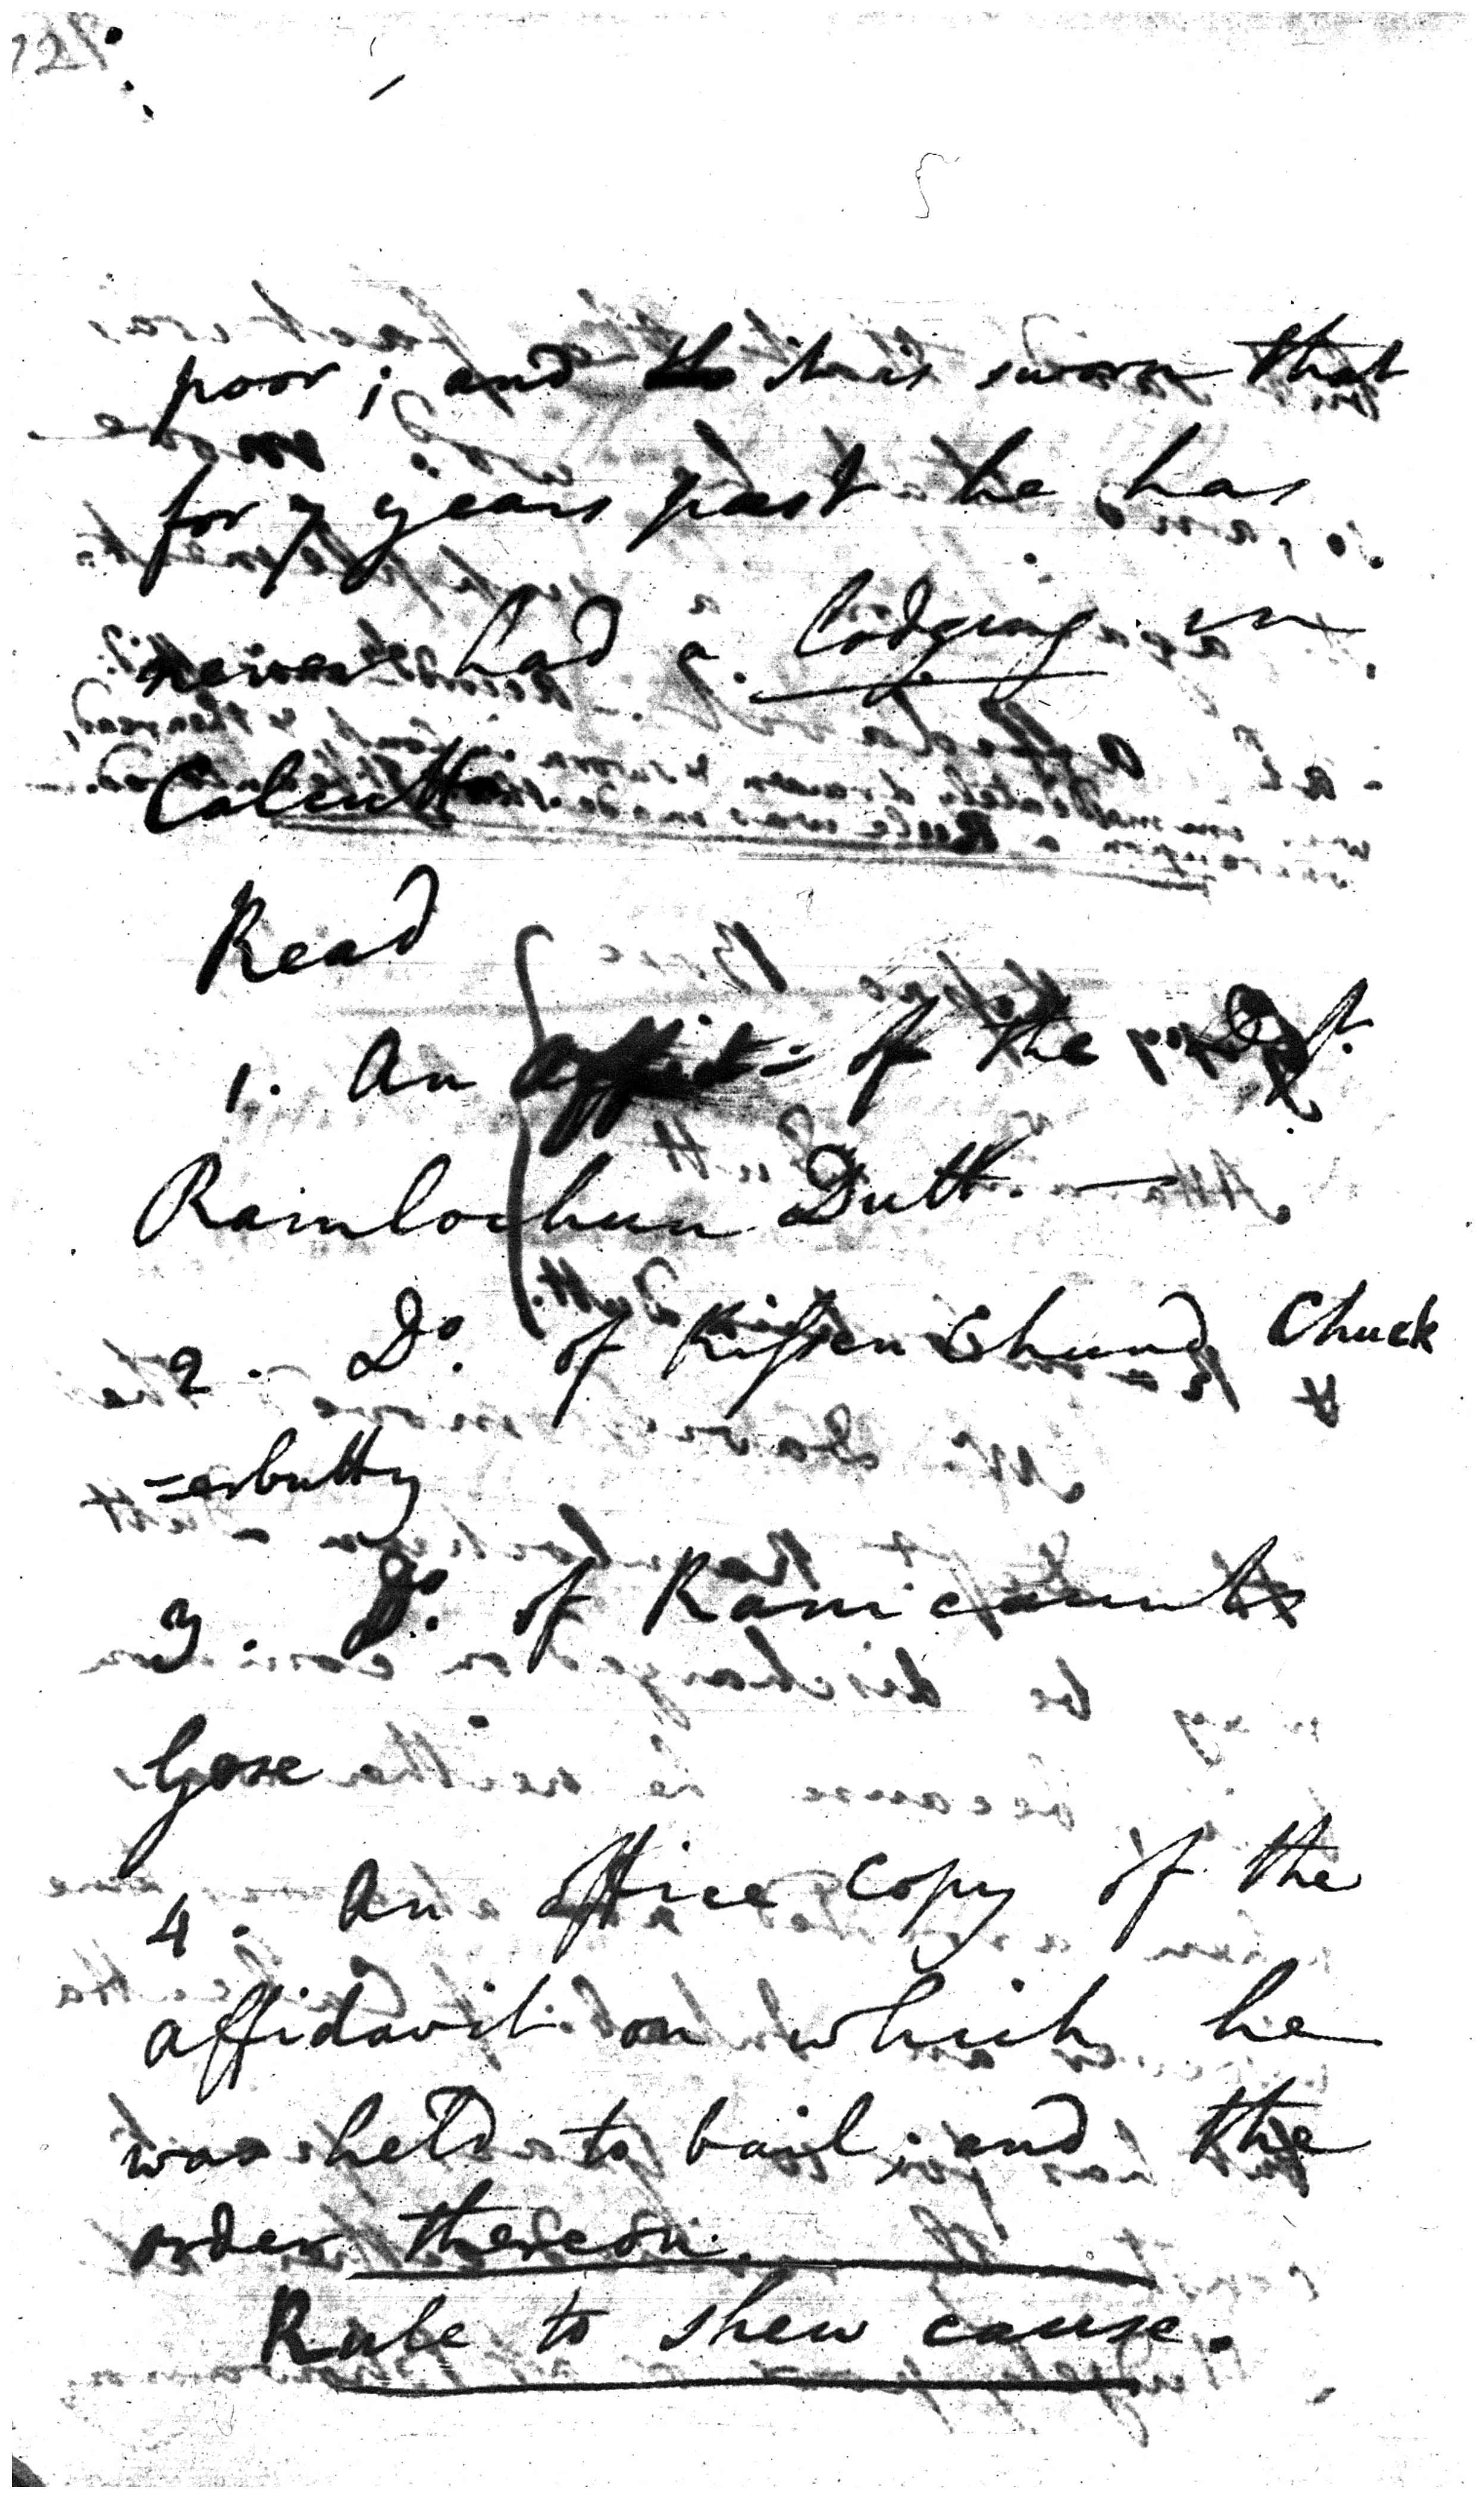 poor; and it is sworn that
for 7 years past he has
never had a lodging in
Calcutta
Read
1. An affit= of the Deft.
Ramlochun Dutt. —
2. Do. of Kissen Chund Chuck
=erbutty
3. Do. of Ramcaunt
Gose
4. An office copy of the
affidavit on which he
was held to bail; and the
order thereon.
Rule to shew cause.